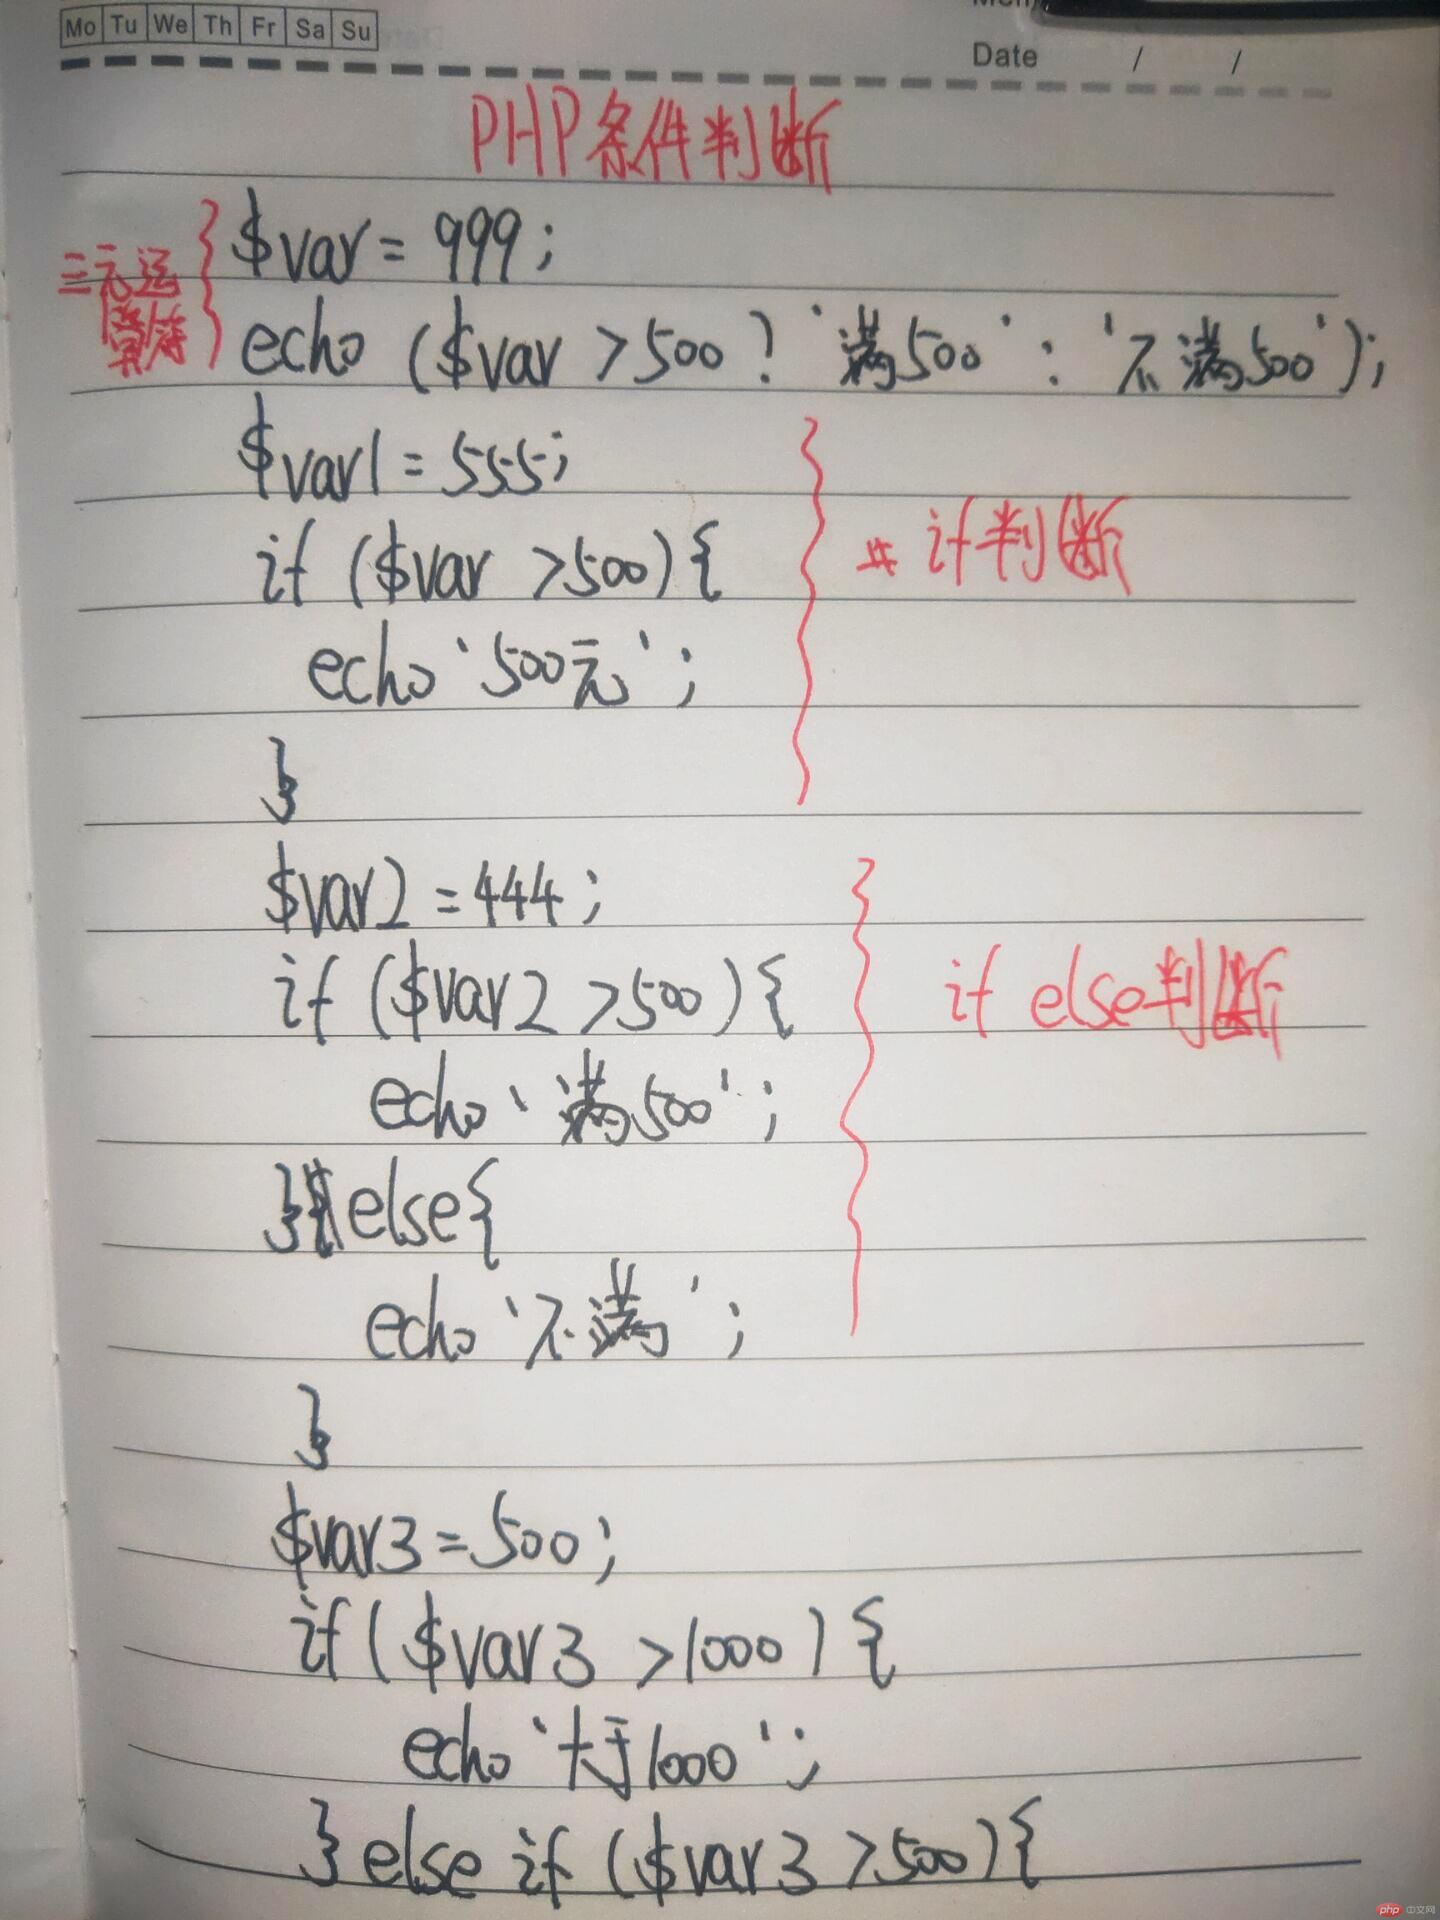 Mo Tu We Th Fr Sa Su
Date / /
PHP条件判断
三元运
算符
$var = 999;
echo ($var > 500 ? '满500' : '不满500');
$var1 = 555;
if ($var > 500) {
# if判断
echo '500元';
}
$var2 = 444;
if ($var2 > 500) {
if else判断
echo '满500';
} else {
echo '不满';
}
$var3 = 500;
if ($var3 > 1000) {
echo '大于1000';
} else if ($var3 > 500) {
php 中文网